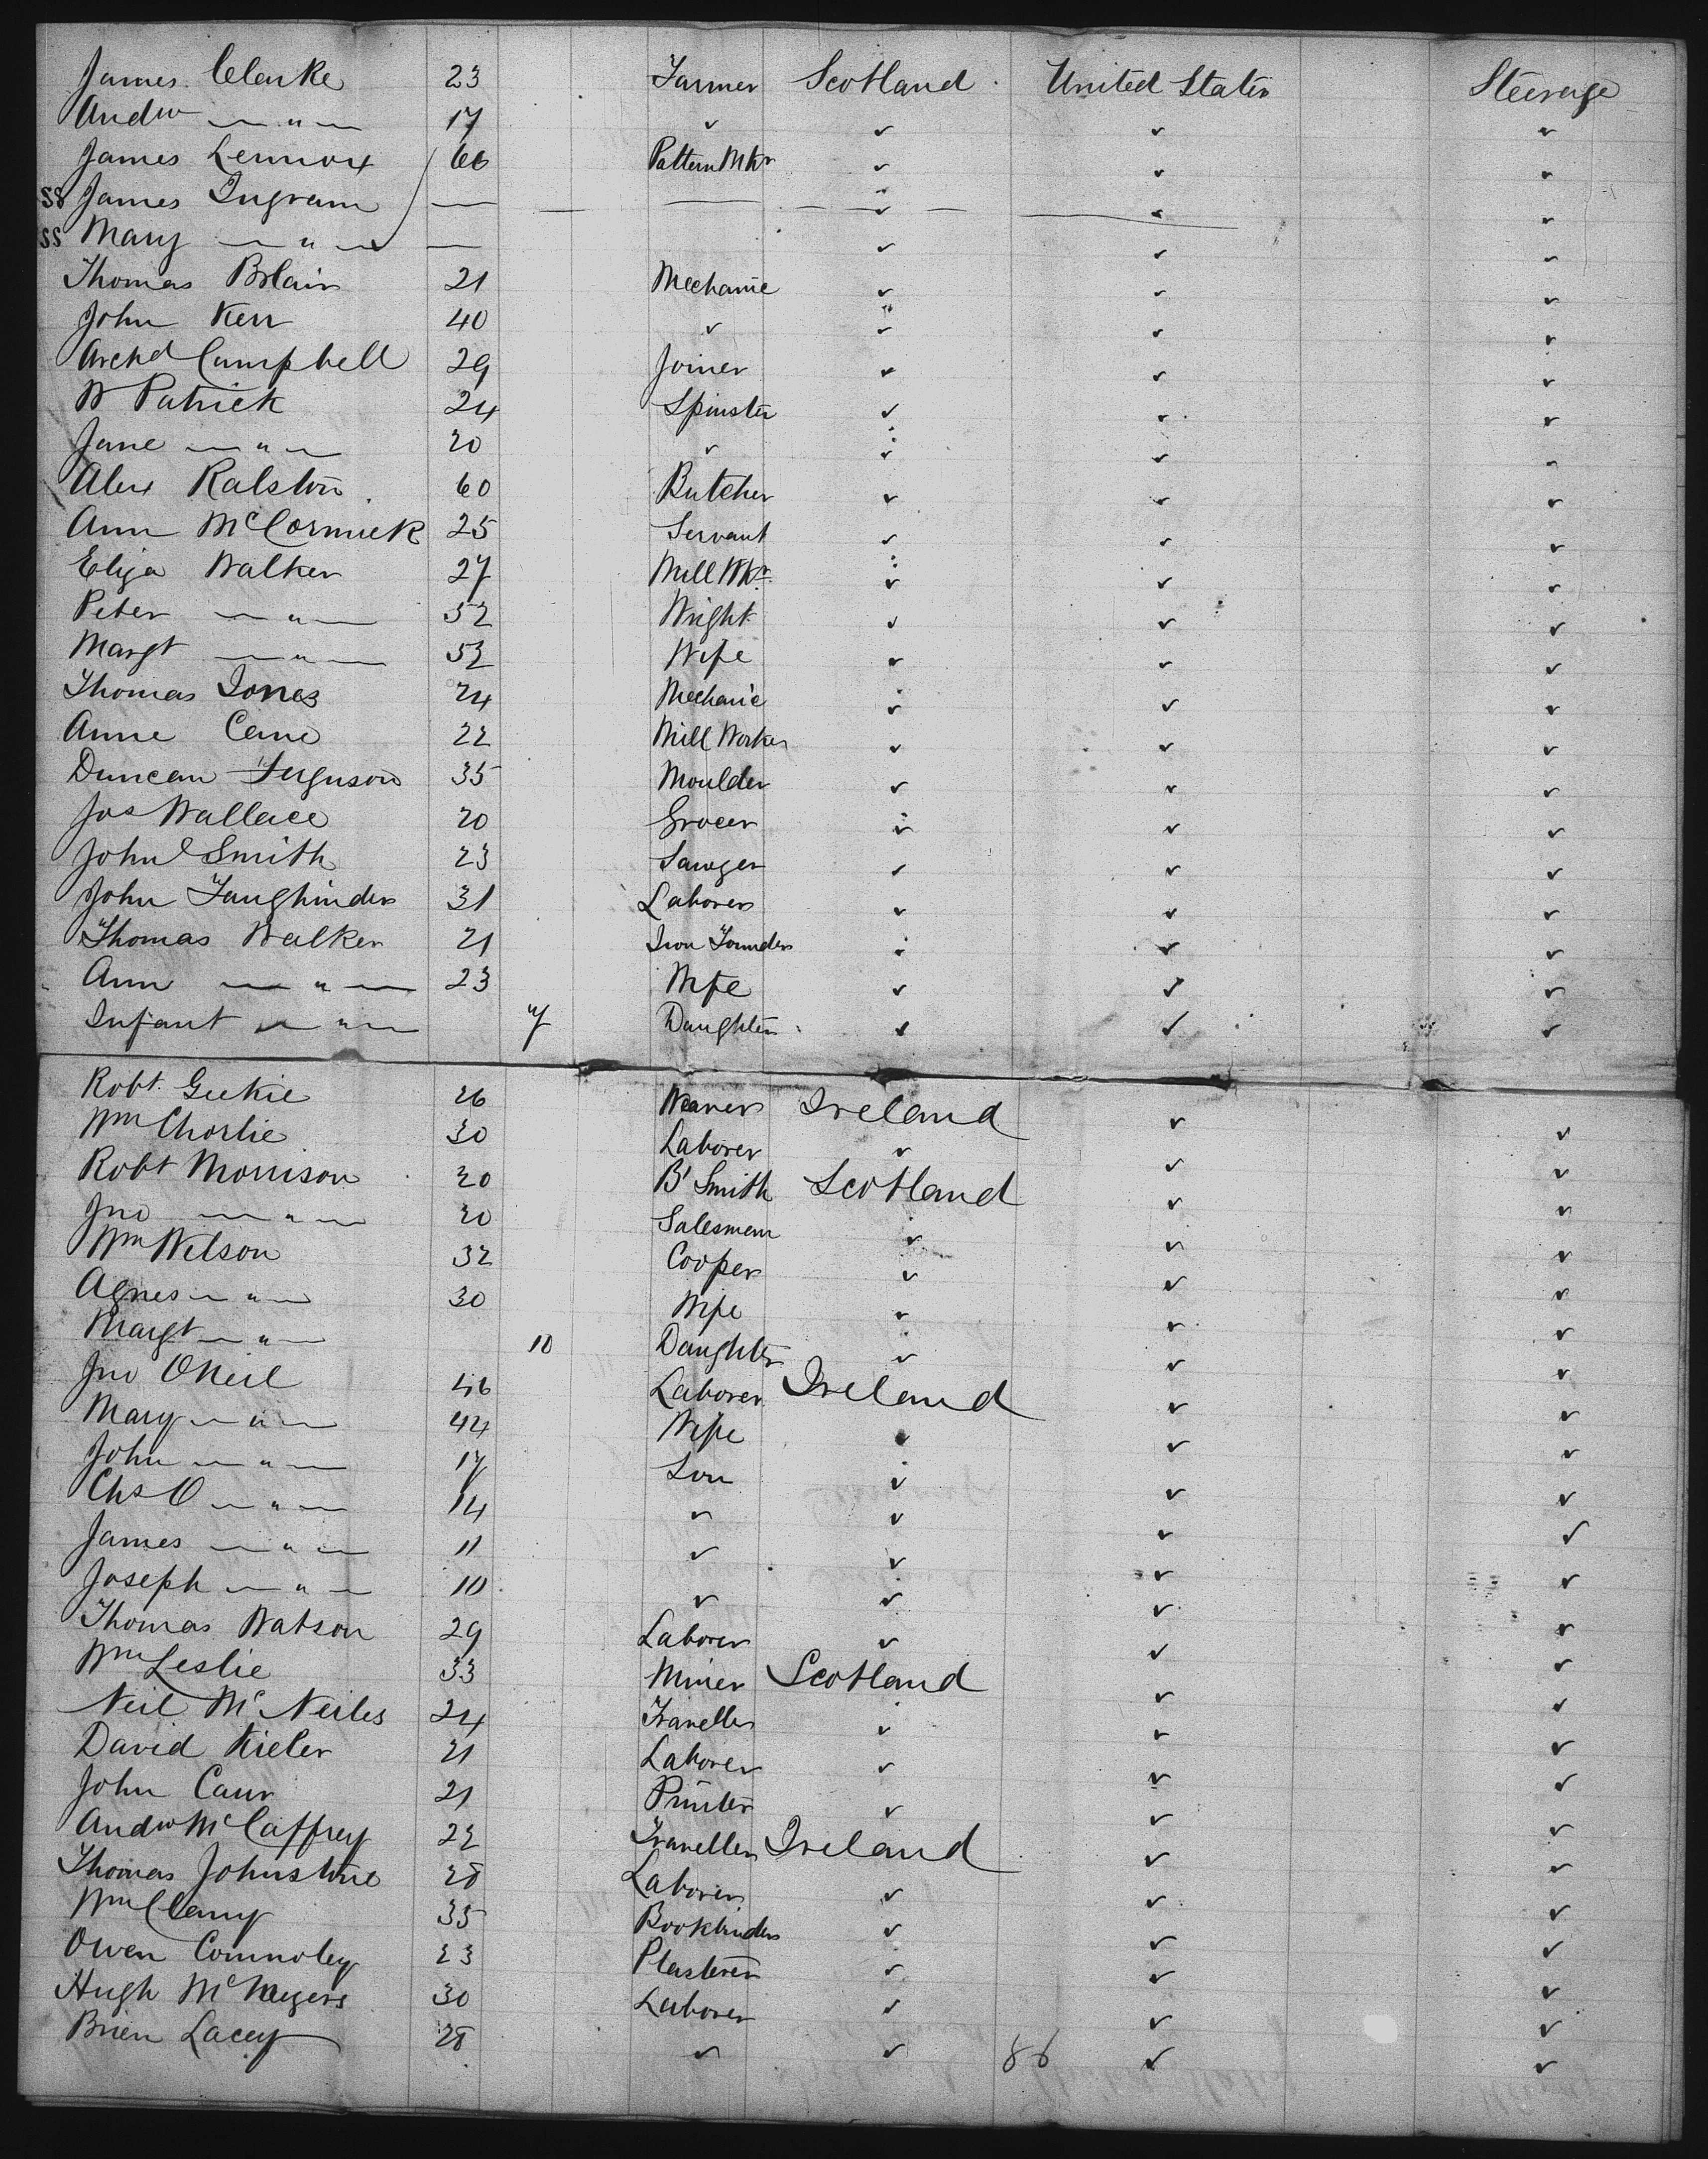 James Clarke 23 Farmer Scotland United States Steerage
Andw — " — 17 " " " "
James Lennox 66 Pattern Mkr " " "
SS James Ingram — — — " — " "
SS Mary — " — — " " "
Thomas Blair 21 Mechanic " " "
John Kerr 40 " " " "
Archd Campbell 29 Joiner " " "
W Patrick 24 Spinster " " "
Jane — " — 20 " " " "
Alex Ralston 60 Butcher " " "
Ann McCormick 25 Servant " " "
Eliza Walker 27 Mill Wkr " " "
Peter — " — 52 Wright " " "
Margt — " — 52 Wife " " "
Thomas Jones 24 Mechanic " " "
Anne Cane 22 Mill Worker " " "
Duncan Ferguson 35 Moulder " " "
Jas Wallace 20 Grocer " " "
John Smith 23 Sawyer " " "
John 31 Laborer " " "
Thomas Walker 21 Iron Founder " " "
Ann — " — 23 Wife " " "
Infant — " — Daughter " " "
Robt. Geekie 26 Weaver Ireland " "
Wm Chorlie 30 Laborer " " "
Robt Morrison 20 Bl Smith Scotland " "
Jno — " — 20 Salesman " " "
Wm Wilson 32 Cooper " " "
Agnes — " — 30 Wife " " "
Margt — " — 10 Daughter " " "
Jno ONeil 46 Laborer Ireland " "
Mary — " — 44 Wife " " "
John — " — 17 Son " " "
Chs O — " — 14 " " " "
James — " — 11 " " " "
Joseph — " — 10 " " " "
Thomas Watson 29 Laborer " " "
Wm Leslie 33 Miner Scotland " "
Neil McNeiles 24 Traveller " " "
David Kieler 21 Laborer " " "
John Carr 21 Printer " " "
Andw McCaffrey 22 Traveller Ireland " "
Thomas Johnstone 28 Laborer " " "
Wm Clany 35 Bookbinder " " "
Owen Connoley 23 Plasterer " " "
Hugh McMeyers 30 Laborer " " "
Brien Lacey 28 " " 86 " "